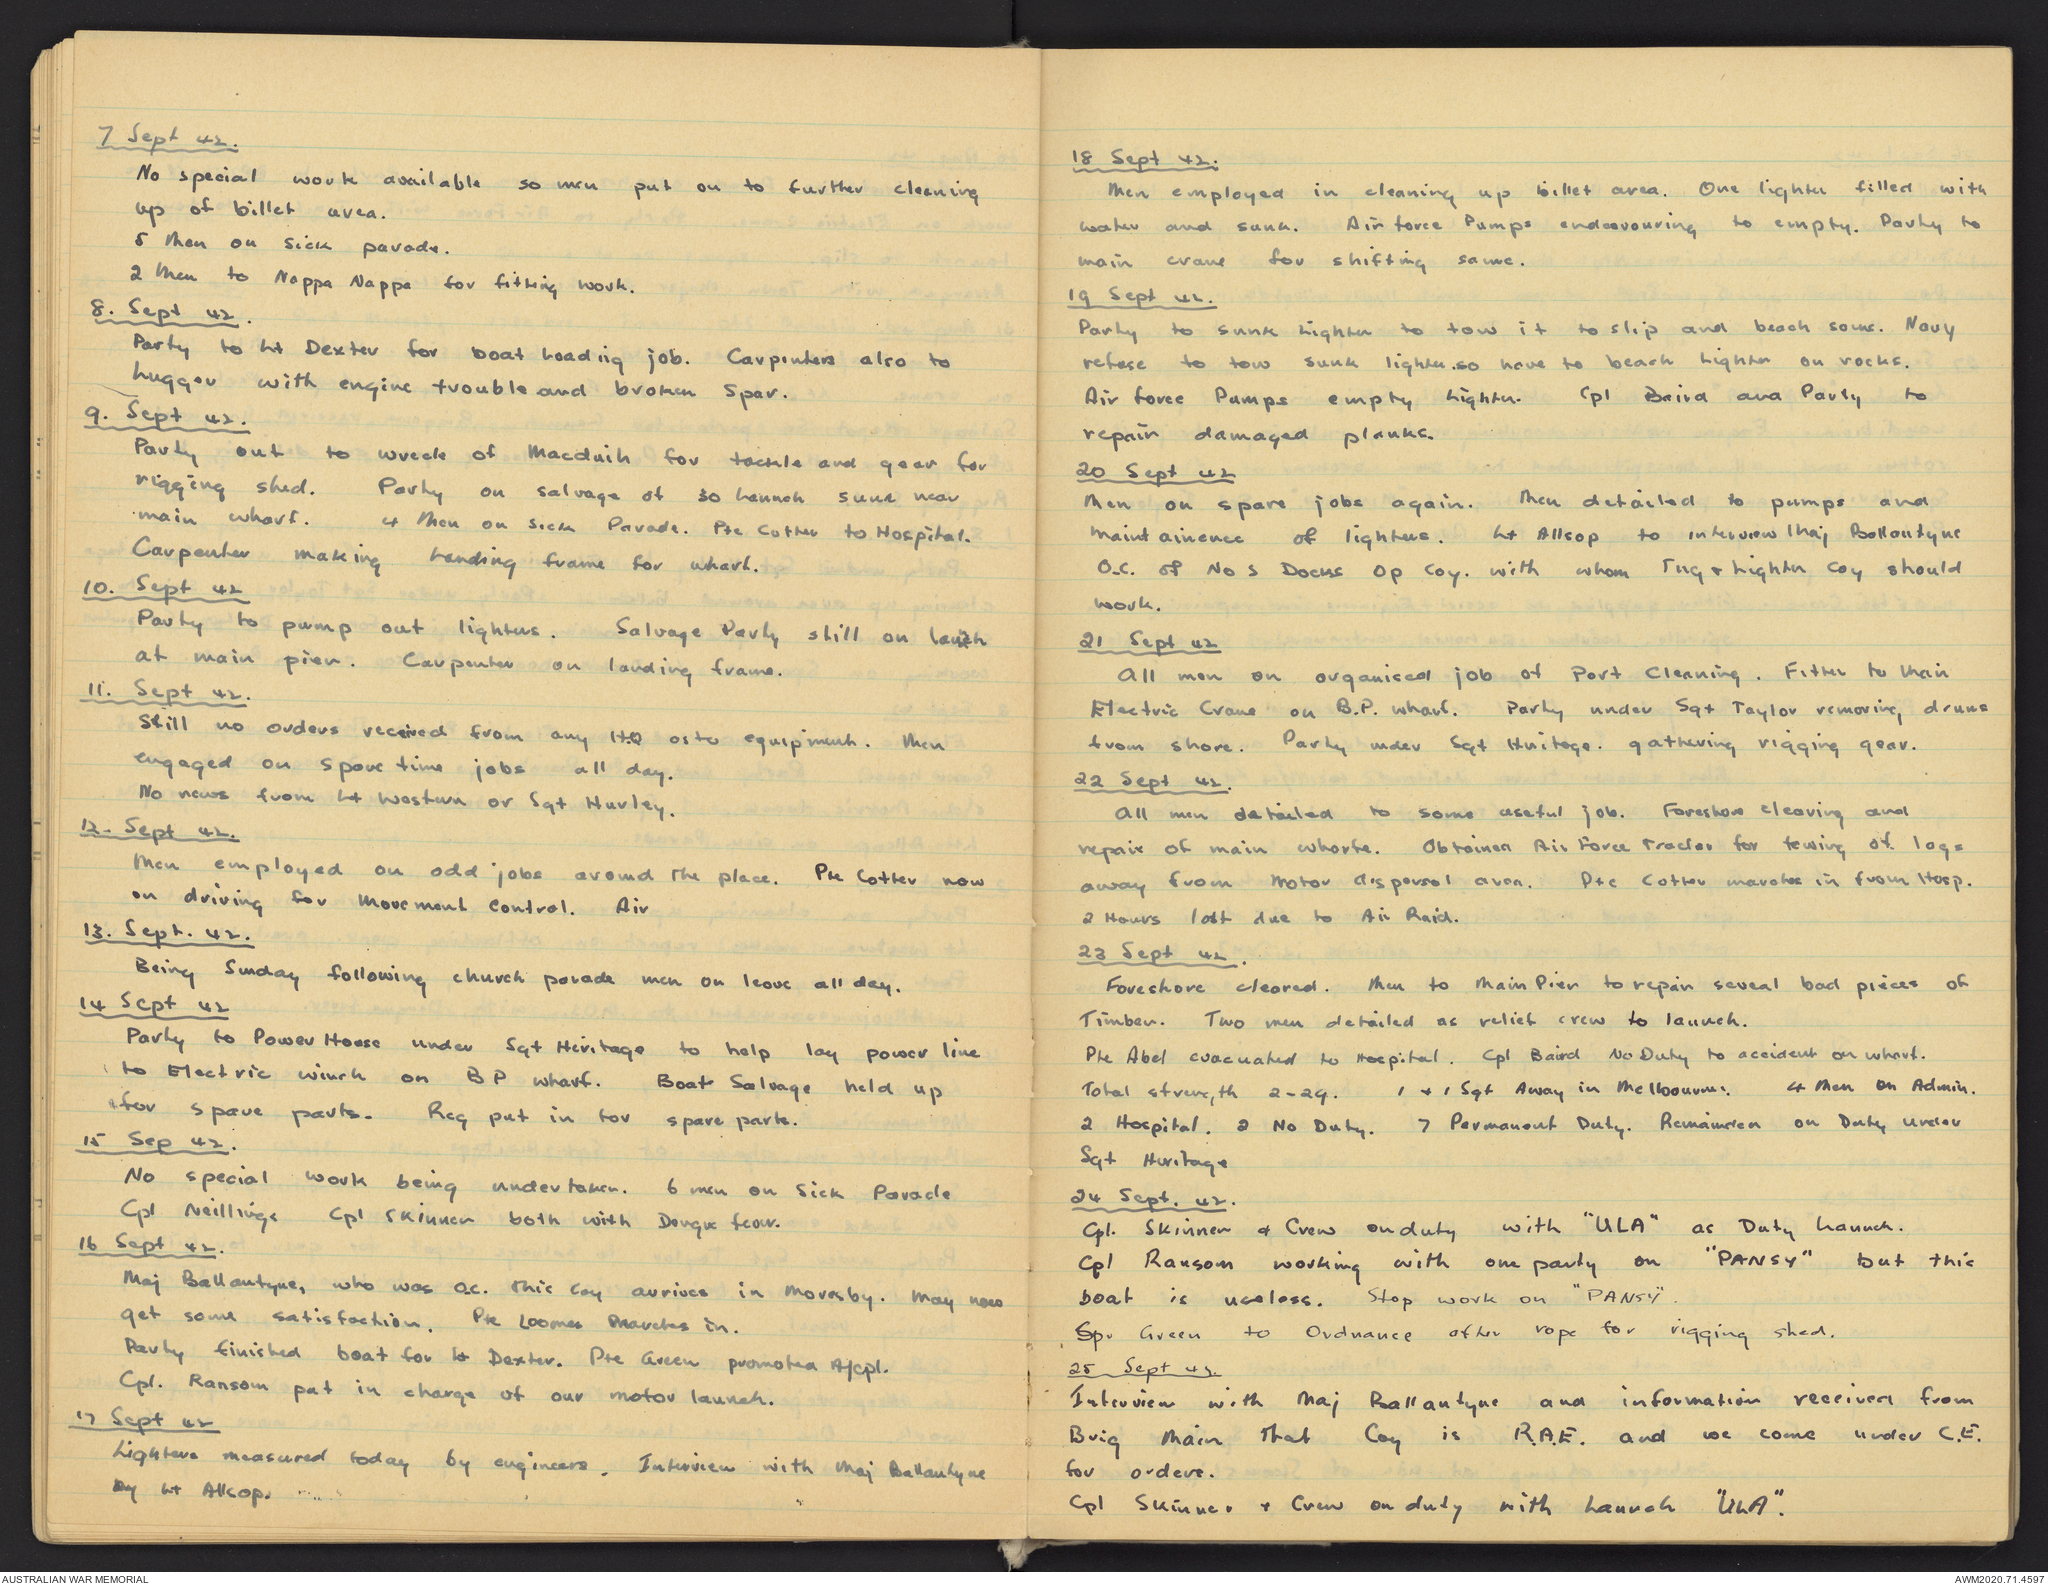 7 Sept 42.
No special work available so men put on to further cleaning
up of billet area.
5 Men on sick parade.
2 Men to Nappa Nappa for fitting work.
8. Sept 42.
Party to Lt Dexter for boat loading job. Carpenters also to
lugger with engine trouble and broken Spar.
9. Sept 42.
Party out to wreck of Macduih for tackle and gear for
rigging shed. Party on salvage of 30 Launch sunk near
main wharf. 4 Men on sick Parade. Pte Cotter to Hospital.
Carpenter making Landing frame for wharf.
10. Sept 42
Party to pump out lighters. Salvage Party still on launch
at main pier. Carpenter on landing frame.
11. Sept 42.
Still no orders received from any H.Q as to equipment. Men
engaged on spare time jobs all day.
No news from Lt Western or Sgt Hurley.
12. Sept 42.
Men employed on odd jobs around the place. Pte Cotter now
on driving for Movement Control. Air
13. Sept. 42.
Being Sunday following church parade men on leave all day.
14 Sept 42
Party to Power House under Sgt Heritage to help lay power line
to Electric winch on B P wharf. Boat Salvage held up
for spare parts. Req put in for spare parts.
15 Sep 42.
No special work being undertaken. 6 men on Sick Parade
Cpl Neillings Cpl Skinner both with Dengue fever.
16 Sept 42.
Maj Ballantyne, who was O.C. this coy arrives in Moresby. May now
get some satisfaction. Pte Loomes Marches in.
Party finished boat for Lt Dexter. Pte Green promoted A/cpl.
Cpl. Ransom put in charge of our motor launch.
17 Sept 42
Lighters measured today by engineers. Interview with Maj Ballantyne
by Lt Allsop.
18 Sept 42.
Men employed in cleaning up billet area. One lighter filled with
water and sunk. Air force Pumps endeavouring to empty. Party to
main crane for shifting same.
19 Sept 42.
Party to sunk Lighter to tow it to slip and beach same. Navy
refuse to tow sunk lighter so have to beach Lighter on rocks.
Air force Pumps empty Lighter. Cpl Baird and Party to
repair damaged planks.
20 Sept 42
Men on spare jobs again. Men detailed to pumps and
maintainence of lighters. Lt Allsop to interview Maj Ballantyne
O.C. of No 5 Docks Op Coy. with whom Tug & Lighter Coy should
work.
21 Sept 42
All men on organised job of Port Cleaning. Fitter to Main
Electric Crane on B.P. wharf. Party under Sgt Taylor removing drums
from shore. Party under Sgt Heritage. gathering rigging gear.
22 Sept 42.
All men detailed to some useful job. Foreshore clearing and
repair of main wharfe. Obtained Air Force Tractor for towing of logs
away from Motor dispersal area. Pte Cotter marches in from Hosp.
2 Hours lost due to Air Raid.
23 Sept 42.
Foreshore cleared. Men to Main Pier to repair several bad pieces of
Timber. Two men detailed as relief crew to launch.
Pte Abel evacuated to Hospital. Cpl Baird No Duty to accident on wharf.
Total strength 2-29. 1 + 1 Sgt Away in Melbourne. 4 Men on Admin.
2 Hospital. 2 No Duty. 7 Permanent Duty. Remainder on Duty under
Sgt Heritage
24 Sept. 42.
Cpl. Skinner & Crew on duty with "ULA" as Duty Launch.
Cpl Ransom working with one party on "PANSY" but this
boat is useless. Stop work on "PANSY".
Spr Green to Ordnance after rope for rigging shed.
25 Sept 42.
Interview with Maj Ballantyne and information received from
Brig Main that Coy is R.A.E. and we come under C.E.
for orders.
Cpl Skinner & Crew on duty with Launch "ULA".
AUSTRALIAN WAR MEMORIAL
AWM2020.71.4597